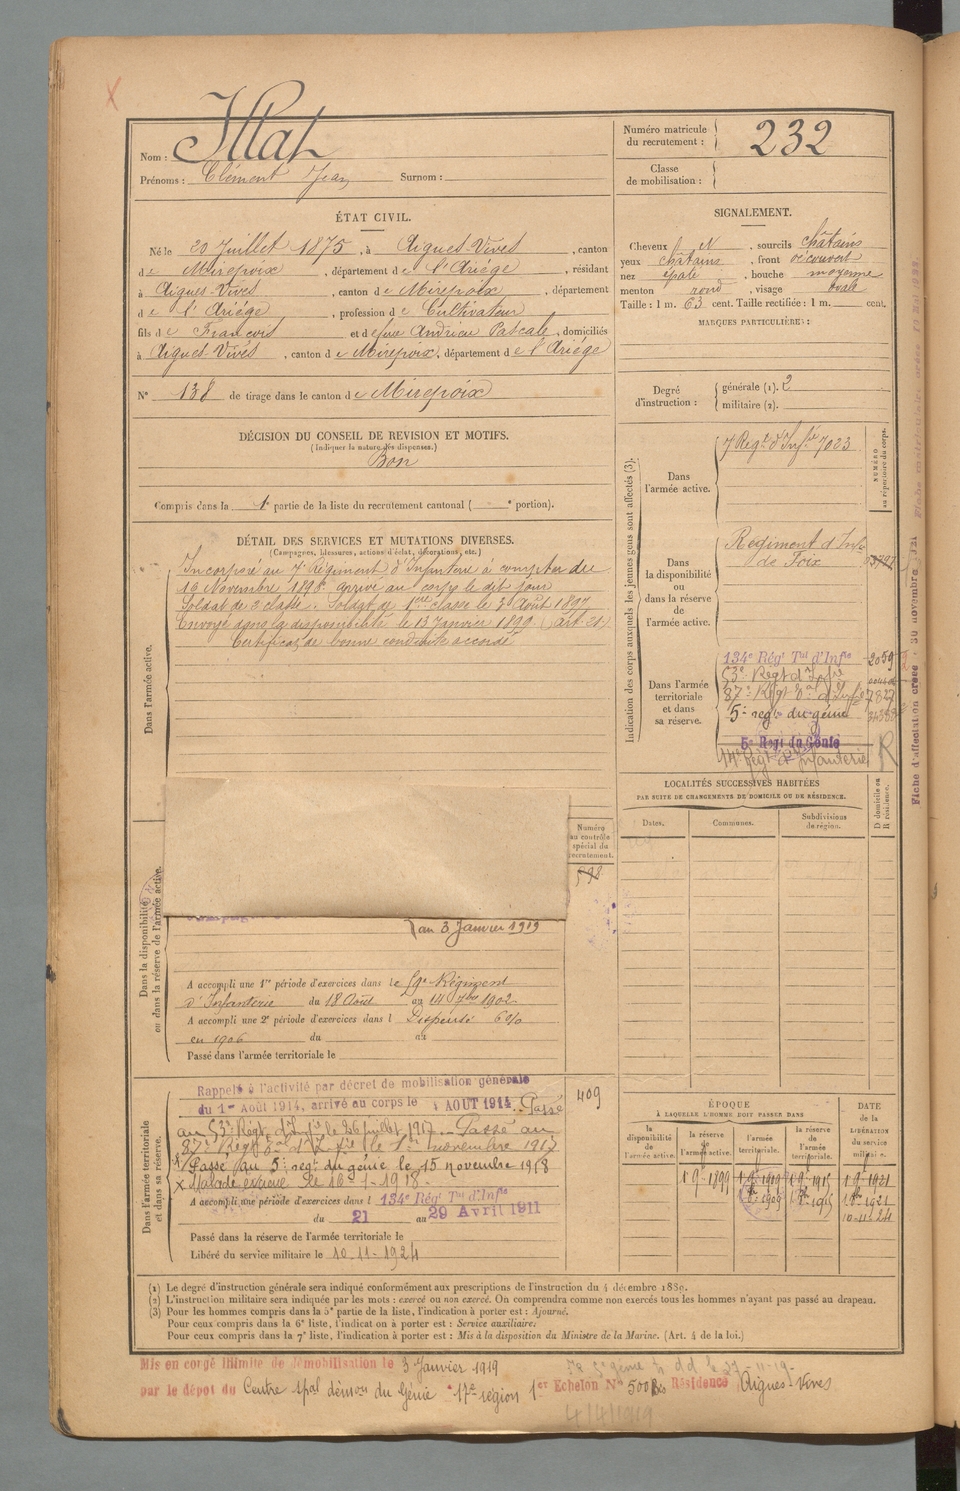 Nom : Ilat
Prénoms : Clément Jean Surnom :
Numéro matricule du recrutement : 232
Classe de mobilisation :
ÉTAT CIVIL.
Né le 20 Juillet 1875, à Aigues-Vives, canton
de Mirepoix, département de l'Ariège, résidant
à Aigues-Vives, canton de Mirepoix, département
de l'Ariège, profession de Cultivateur
fils de François et de feue Andrieu Pascale, domiciliés
à Aigues-Vives, canton de Mirepoix, département de l'Ariége
N° 138 de tirage dans le canton de Mirepoix
SIGNALEMENT.
Cheveux ch N, sourcils châtains
yeux châtains, front découvert
nez épaté, bouche moyenne
menton rond, visage ovale
Taille : 1 m. 63 cent. Taille rectifiée : 1 m. cent.
MARQUES PARTICULIÈRES :
Degré d'instruction : générale (1). 2
militaire (2).
DÉCISION DU CONSEIL DE REVISION ET MOTIFS.
(Indiquer la nature des dispenses.)
Bon
Compris dans la 1e partie de la liste du recrutement cantonal ( e portion).
DÉTAIL DES SERVICES ET MUTATIONS DIVERSES.
(Campagnes, blessures, actions d'éclat, décorations, etc.)
Dans l'armée active.
Incorporé au 7e Régiment d'Infanterie à compter du
16 Novembre 1896 arrivé au corps le dit jour
Soldat de 2 classe. Soldat de 1ère classe le 3 Août 1897
Envoyé dans la disponibilité le 13 Janvier 1899 (art. 21)
Certificat de bonne conduite accordé
Indication des corps auxquels les jeunes gens sont affectés (3).
NUMÉRO au répertoire du corps.
Dans l'armée active.
7 Régt d'Infie 7023
Dans la disponibilité ou dans la réserve de l'armée active.
Régiment d'Infie
de Foix
Dans l'armée territoriale et dans sa réserve.
134e Régt Tal d'Infie 2059
53e Regt d'Infie
87e Régt d'Infie 7827
5e regt du génie
5e Regt du Génie
14e régt d'infanterie R
LOCALITÉS SUCCESSIVES HABITÉES
PAR SUITE DE CHANGEMENTS DE DOMICILE OU DE RÉSIDENCE.
Dates. Communes. Subdivisions de région. D domicile ou R résidence.
Dans la disponibilité ou dans la réserve de l'armée active.
Numéro au contrôle spécial du recrutement.
au 3 Janvier 1919
A accompli une 1re période d'exercices dans le 59e Régiment
d'Infanterie du 18 Août au 14 7bre 1902
A accompli une 2e période d'exercices dans l Dispensé 6%
en 1906 du au
Passé dans l'armée territoriale le
Dans l'armée territoriale et dans sa réserve.
409
Rappelé à l'activité par décret de mobilisation générale
du 1er Août 1914, arrivé au corps le 4 AOUT 1914. Passé
au 53e Régt d'Infie le 26 juillet 1917. Passé au
87e Régt d'Infie le 1er novembre 1917
Passé au 5e regt du génie le 15 novembre 1918
A accompli une période d'exercices dans l 134e Rég' Tal d'Infie
du 21 au 29 Avril 1911
Passé dans la réserve de l'armée territoriale le
Libéré du service militaire le 10-11-1924
ÉPOQUE À LAQUELLE L'HOMME DOIT PASSER DANS
DATE de la LIBÉRATION du service militaire.
la disponibilité de l'armée active. la réserve de l'armée active. l'armée territoriale. la réserve de l'armée territoriale.
1 9 1899 1 9 1915 1 9 1921
1 8bre 1909 1 8bre 1915 1 8bre 1921
10-11-24
(1) Le degré d'instruction générale sera indiqué conformément aux prescriptions de l'instruction du 4 décembre 1889.
(2) L'instruction militaire sera indiquée par les mots : exercé ou non exercé. On comprendra comme non exercés tous les hommes n'ayant pas passé au drapeau.
(3) Pour les hommes compris dans la 5e partie de la liste, l'indication à porter est : Ajourné.
Pour ceux compris dans la 6e liste, l'indication à porter est : Service auxiliaire.
Pour ceux compris dans la 7e liste, l'indication à porter est : Mis à la disposition du Ministre de la Marine. (Art. 4 de la loi.)
Mis en congé illimité de démobilisation le 3 Janvier 1919
par le dépôt du Centre spal démou du Génie 17e région 1er Echelon N° 500 Bis Résidence Aigues-Vives
4/4/1919